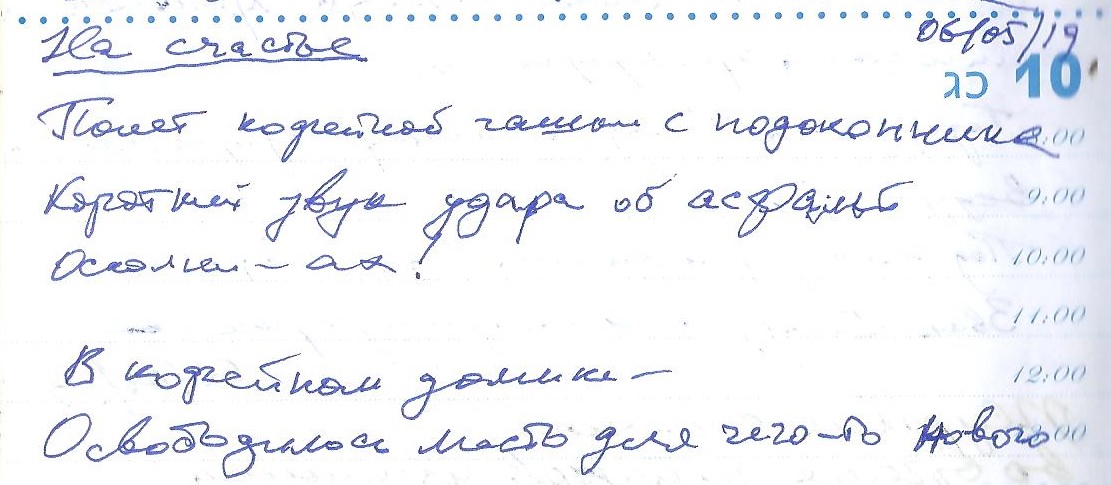 На счастье 06/05/19
כג 10
Полет кофейной чашки с подоконника :00
Короткий звук удара об асфальт 9:00
Осколки – ах! 10:00
11:00
В кофейном домике – 12:00
Освободилось место для чего-то нового :00